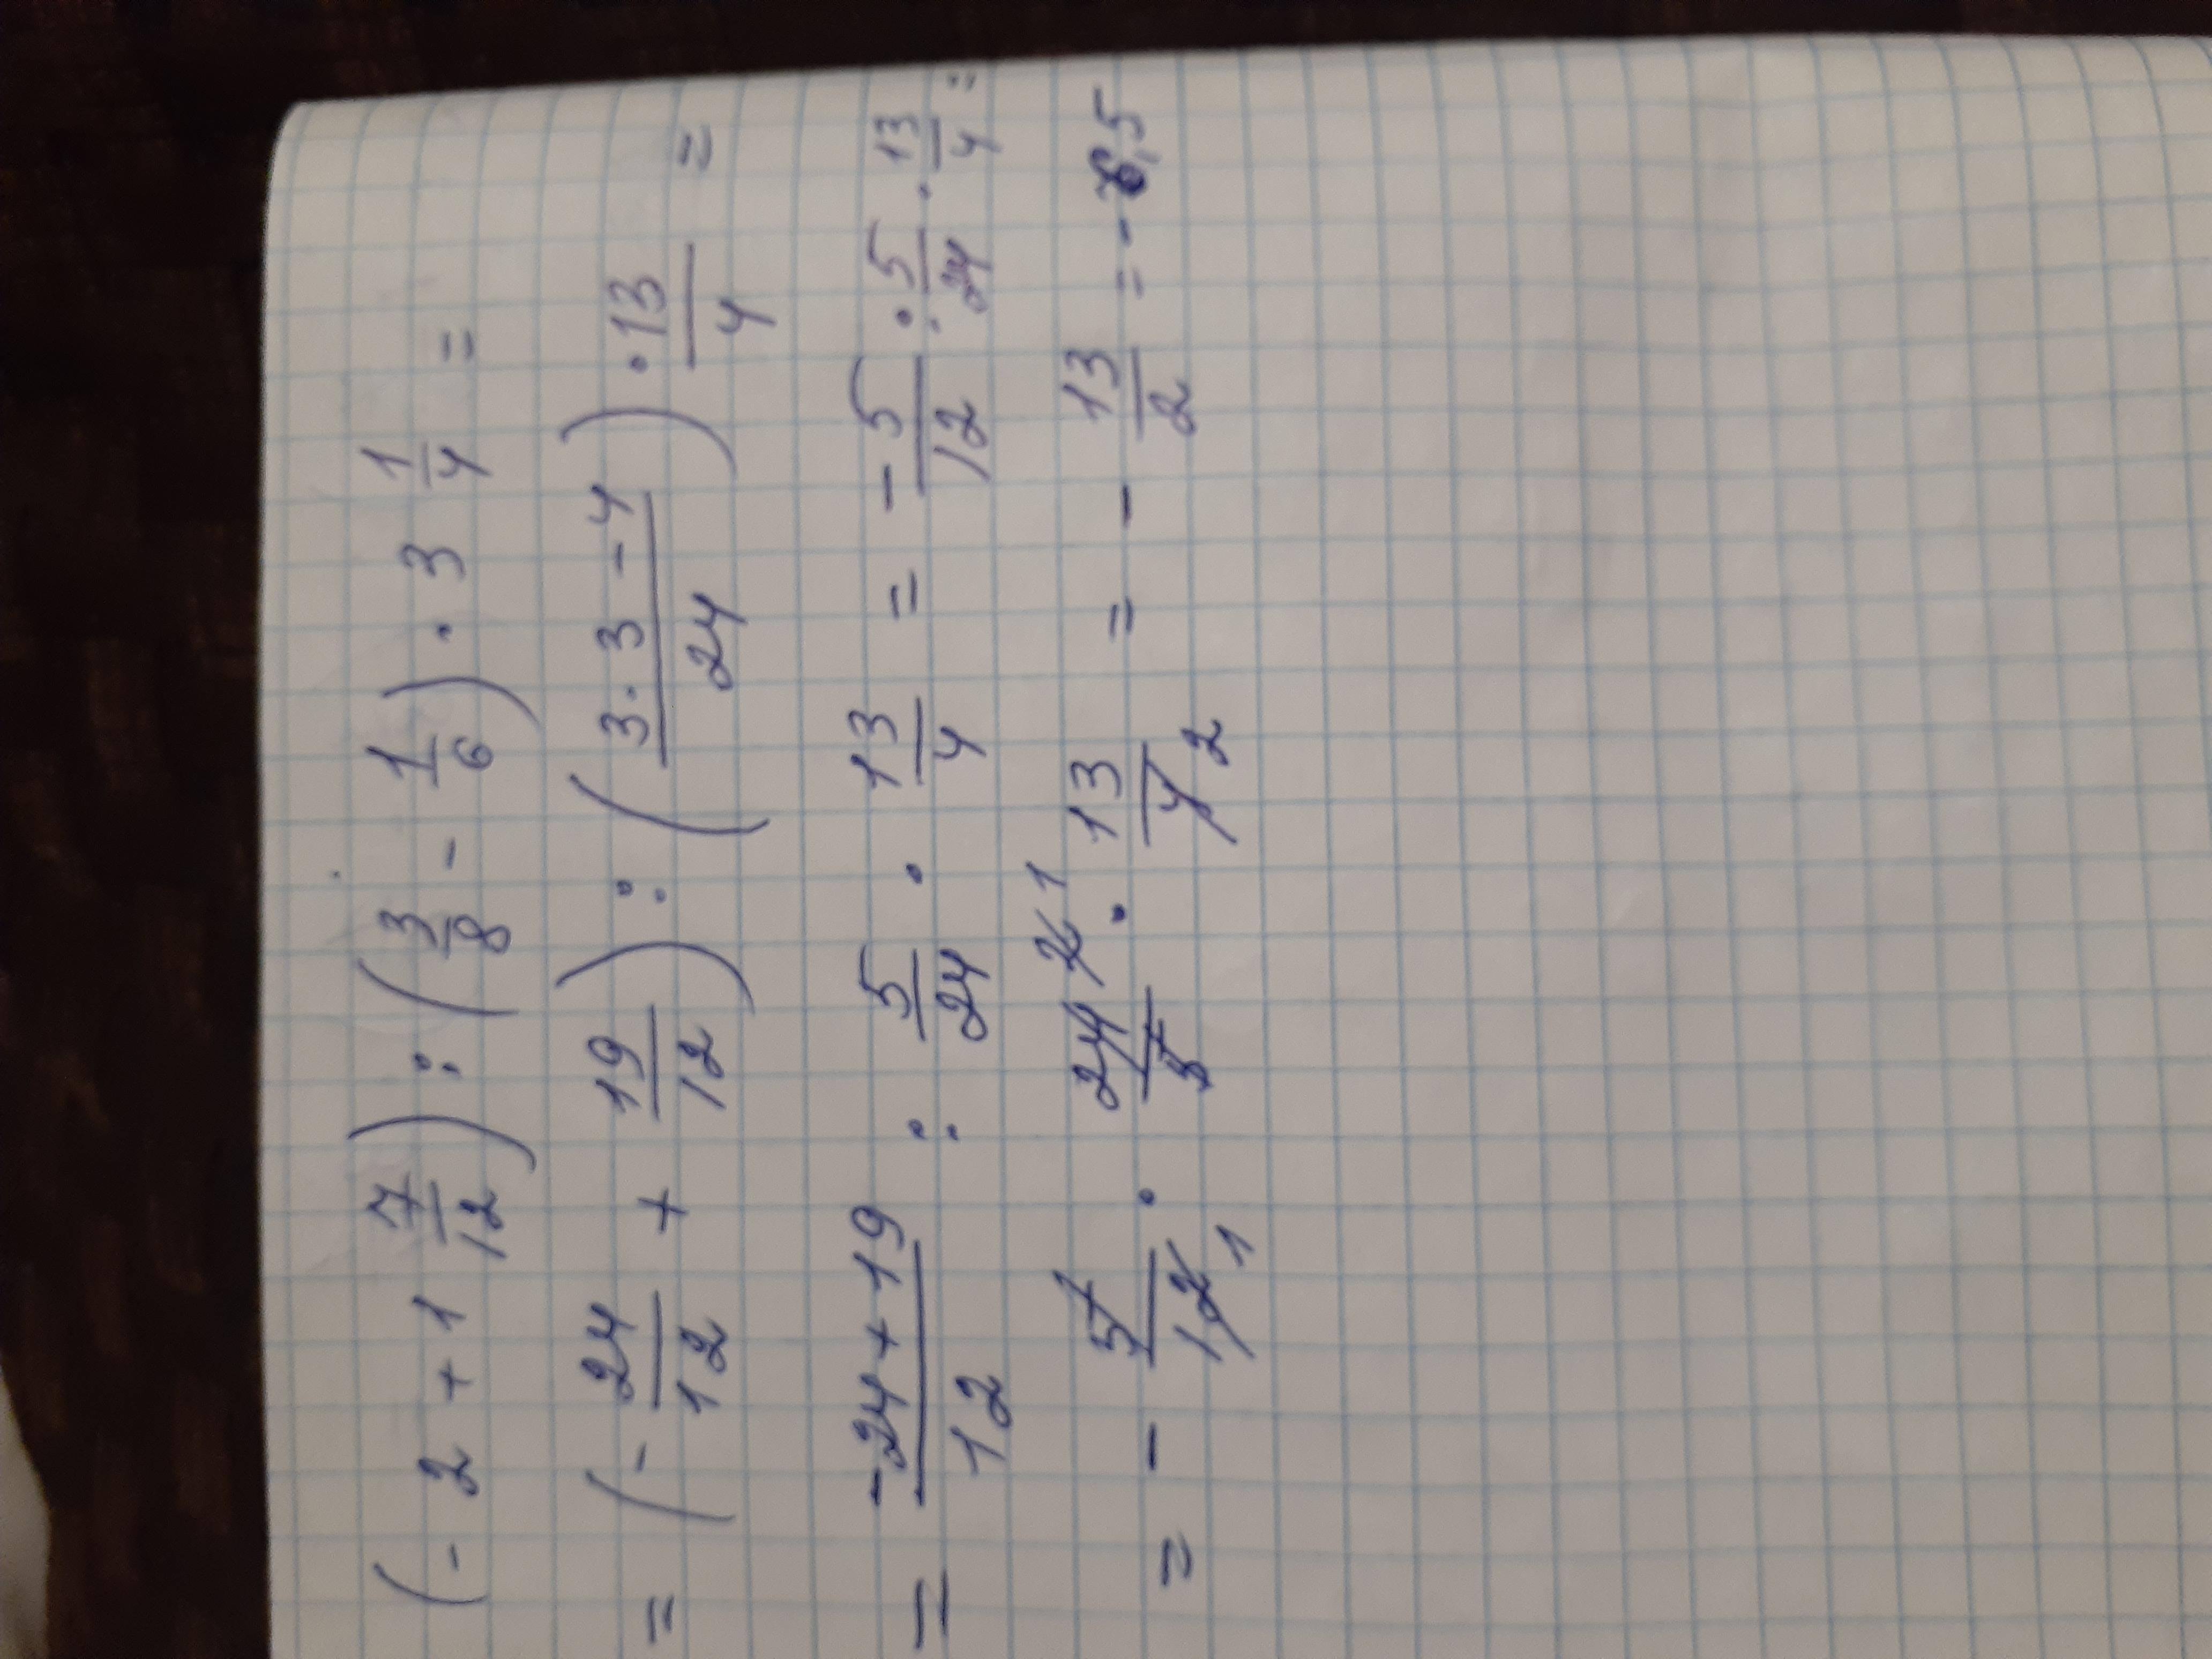 (- 2 + 1 7/12) : (3/8 - 1/6) · 3 1/4 =
= (- 24/12 + 19/12) : (3·3-4/24) · 13/4 =
= -24+19/12 : 5/24 · 13/4 = - 5/12 : 5/24 · 13/4 =
= - 5/12 1 · 24 2 1/5 · 13/4 2 = - 13/2 = - 6,5